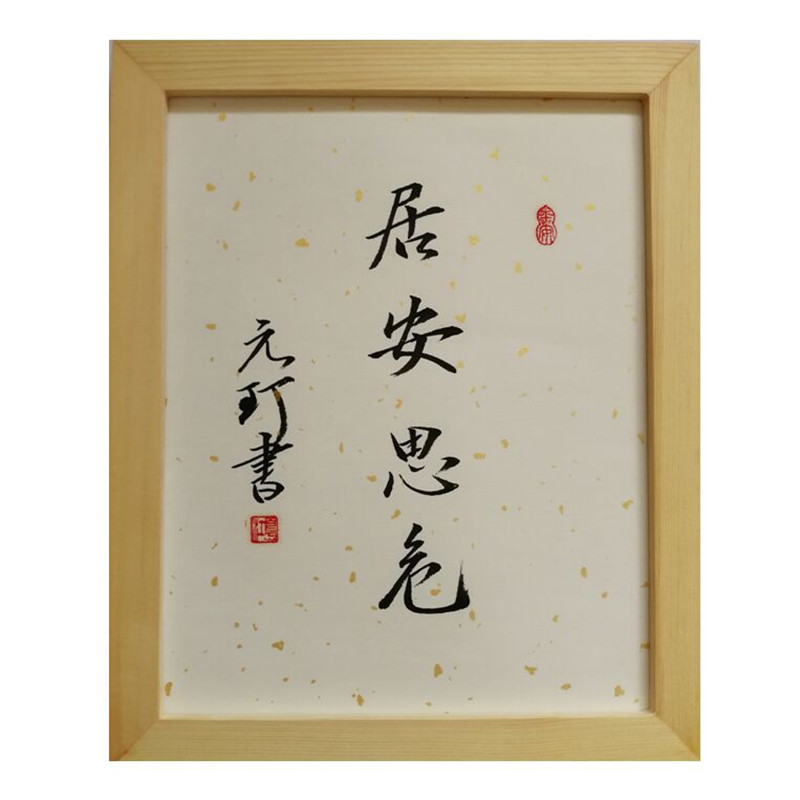 居安思危
元玎書